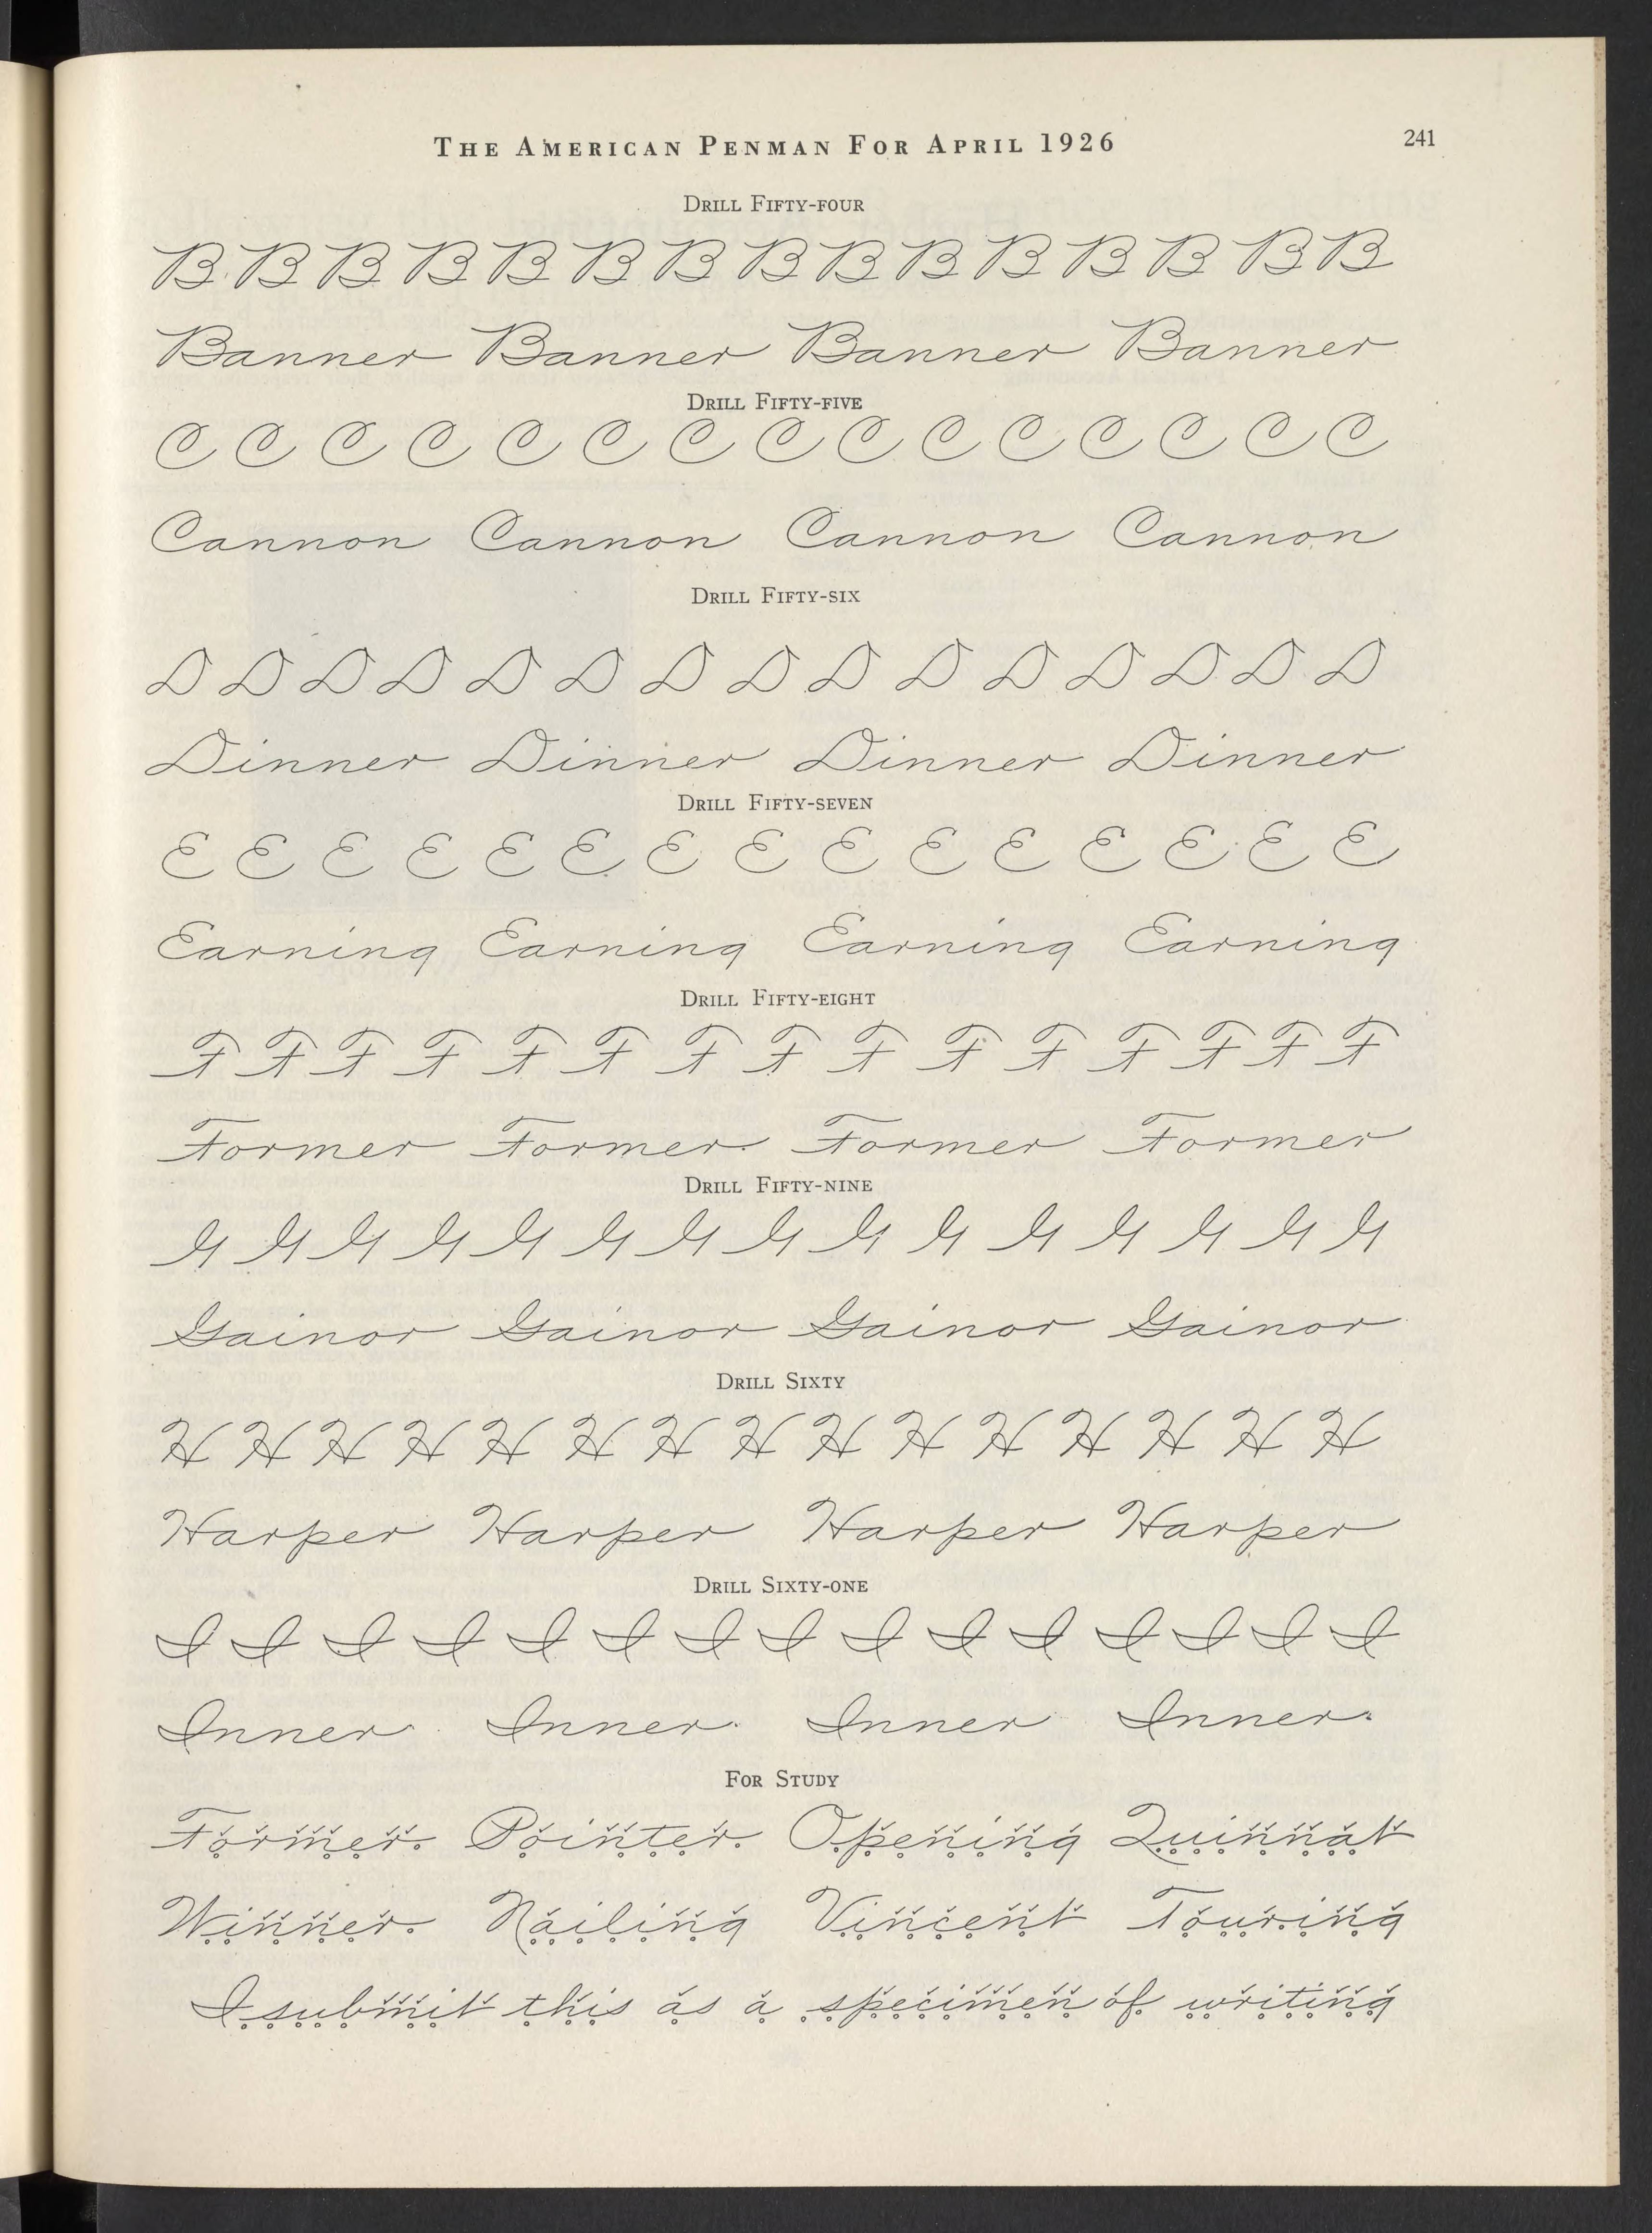 THE AMERICAN PENMAN FOR APRIL 1926 241
DRILL FIFTY-FOUR
B B B B B B B B B B B B B B B
Banner Banner Banner Banner
DRILL FIFTY-FIVE
C C C C C C C C C C C C C C C
Cannon Cannon Cannon Cannon
DRILL FIFTY-SIX
D D D D D D D D D D D D D D D
Dinner Dinner Dinner Dinner
DRILL FIFTY-SEVEN
E E E E E E E E E E E E E E E
Earning Earning Earning Earning
DRILL FIFTY-EIGHT
F F F F F F F F F F F F F F F
Former Former Former Former
DRILL FIFTY-NINE
G G G G G G G G G G G G G G G
Gainor Gainor Gainor Gainor
DRILL SIXTY
H H H H H H H H H H H H H H H
Harper Harper Harper Harper
DRILL SIXTY-ONE
I I I I I I I I I I I I I I I
Inner Inner Inner Inner
FOR STUDY
Former Pointer Opening Quinnat
Winner Nailing Vincent Touring
I submit this as a specimen of writing